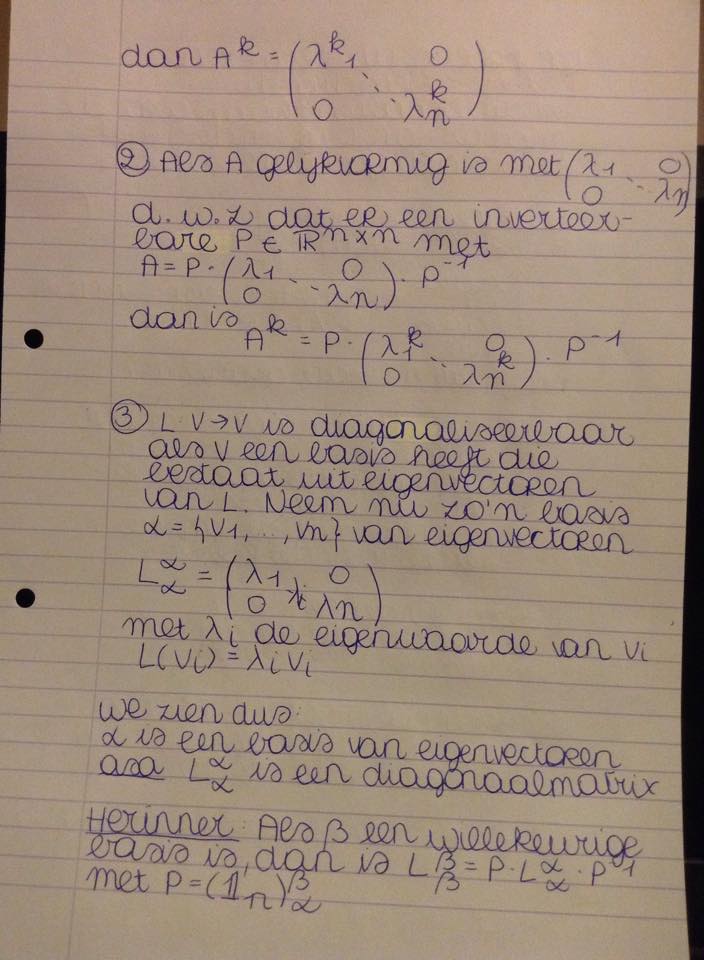 dan A^k = (λ^k_1 ⋱ 0 / 0 λ_n^k)
② Als A gelijkvormig is met (λ_1 ⋱ 0 / 0 λ_n)
d.w.z dat er een inverteer-
bare P ∈ ℝ^{n×n} met
A = P · (λ_1 ⋱ 0 / 0 λ_n) · P^{-1}
dan is
A^k = P · (λ_1^k ⋱ 0 / 0 λ_n^k) · P^{-1}
③ L: V → V is diagonaliseerbaar
als V een basis heeft die
bestaat uit eigenvectoren
van L. Neem nu zo'n basis
α = {v_1, ..., v_n} van eigenvectoren
L_α^α = (λ_1 ⋱ 0 / 0 λ_n)
met λ_i de eigenwaarde van v_i
L(v_i) = λ_i v_i
we zien dus:
α is een basis van eigenvectoren
asa L_α^α is een diagonaalmatrix
Herinner: Als β een willekeurige
basis is, dan is L_β^β = P · L_α^α · P^{-1}
met P = (𝟙_n)_α^β